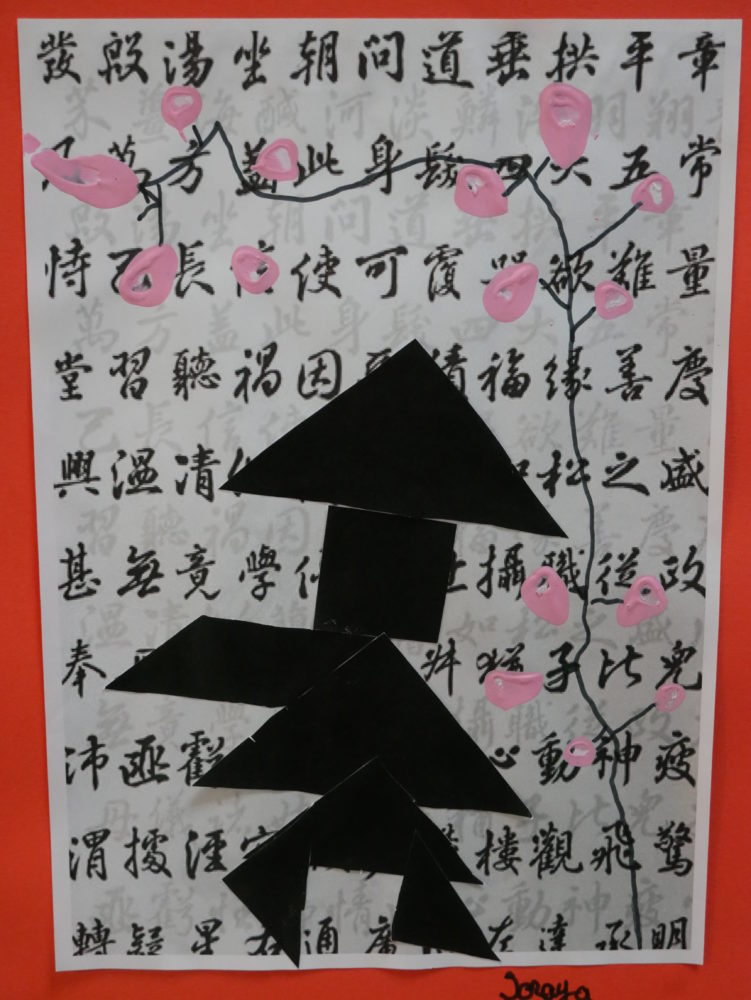 發殷湯坐朝問道垂拱平章
萬方蓋此身髮四大五常
恃己長信使可覆器欲難量
堂習聽禍因積福緣善慶
興溫凊松之盛
甚無竟學攝職從政
奉子比兒
沛匪虧心動神疲
渭據涇宮樓觀飛驚
轉疑星右通廣左達承明
Soraya